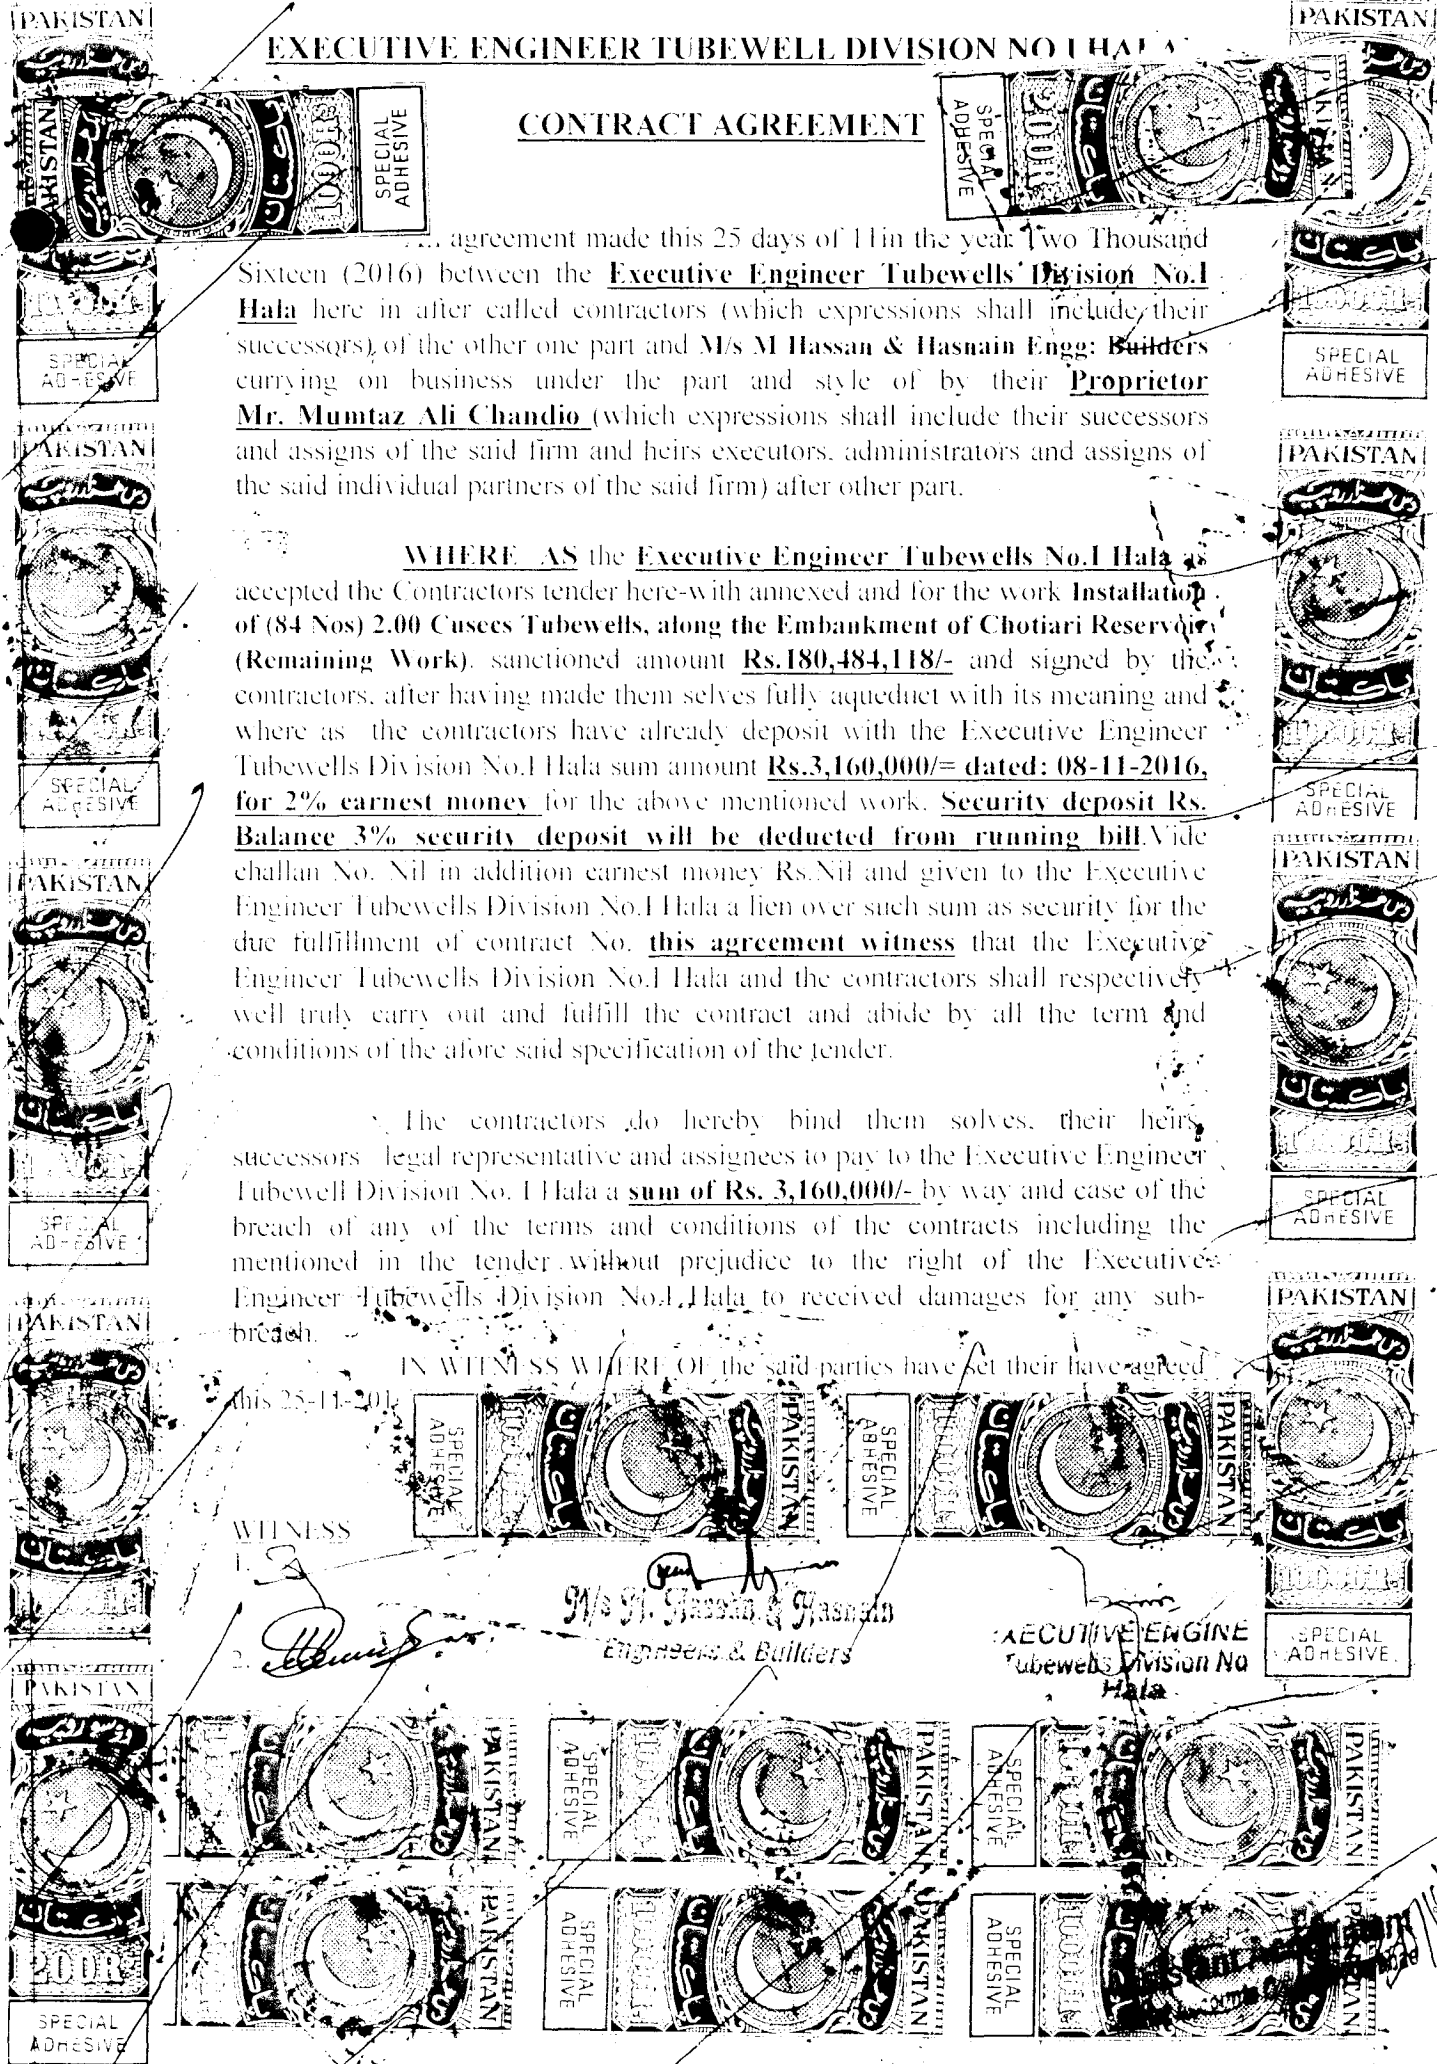 EXECUTIVE ENGINEER TUBEWELL DIVISION NO I HALA
CONTRACT AGREEMENT
agreement made this 25 days of 11in the year Two Thousand
Sixteen (2016) between the Executive Engineer Tubewells Division No.I
Hala here in after called contractors (which expressions shall include their
successors) of the other one part and M/s M Hassan & Hasnain Engg: Builders
currying on business under the part and style of by their Proprietor
Mr. Mumtaz Ali Chandio (which expressions shall include their successors
and assigns of the said firm and heirs executors, administrators and assigns of
the said individual partners of the said firm) after other part.
WHERE AS the Executive Engineer Tubewells No.I Hala as
accepted the Contractors tender here-with annexed and for the work Installation
of (84 Nos) 2.00 Cusecs Tubewells, along the Embankment of Chotiari Reservoir,
(Remaining Work), sanctioned amount Rs.180,484,118/- and signed by the
contractors, after having made them selves fully aqueduct with its meaning and
where as the contractors have already deposit with the Executive Engineer
Tubewells Division No.I Hala sum amount Rs.3,160,000/= dated: 08-11-2016,
for 2% earnest money for the above mentioned work. Security deposit Rs.
Balance 3% security deposit will be deducted from running bill.Vide
challan No. Nil in addition earnest money Rs.Nil and given to the Executive
Engineer Tubewells Division No.I Hala a lien over such sum as security for the
due fulfillment of contract No. this agreement witness that the Executive
Engineer Tubewells Division No.I Hala and the contractors shall respectively
well truly carry out and fulfill the contract and abide by all the term and
conditions of the afore said specification of the tender.
The contractors do hereby bind them solves, their heirs,
successors legal representative and assignees to pay to the Executive Engineer
Tubewell Division No. I Hala a sum of Rs. 3,160,000/- by way and case of the
breach of any of the terms and conditions of the contracts including the
mentioned in the tender without prejudice to the right of the Executive
Engineer Tubewells Division No.I Hala to received damages for any sub-
breach.
IN WITNESS WHERE OF the said parties have set their have agreed
this 25-11-201
WITNESS
1.
2.
M/s M. Hassan & Hasnain
Engineers & Builders
EXECUTIVE ENGINE
Tubewells Division No
Hala
PAKISTAN
پاکستان
SPECIAL
ADHESIVE
PAKISTAN
دس ہزار روپیہ
پاکستان
SPECIAL
ADHESIVE
200R
SPECIAL
ADHESIVE